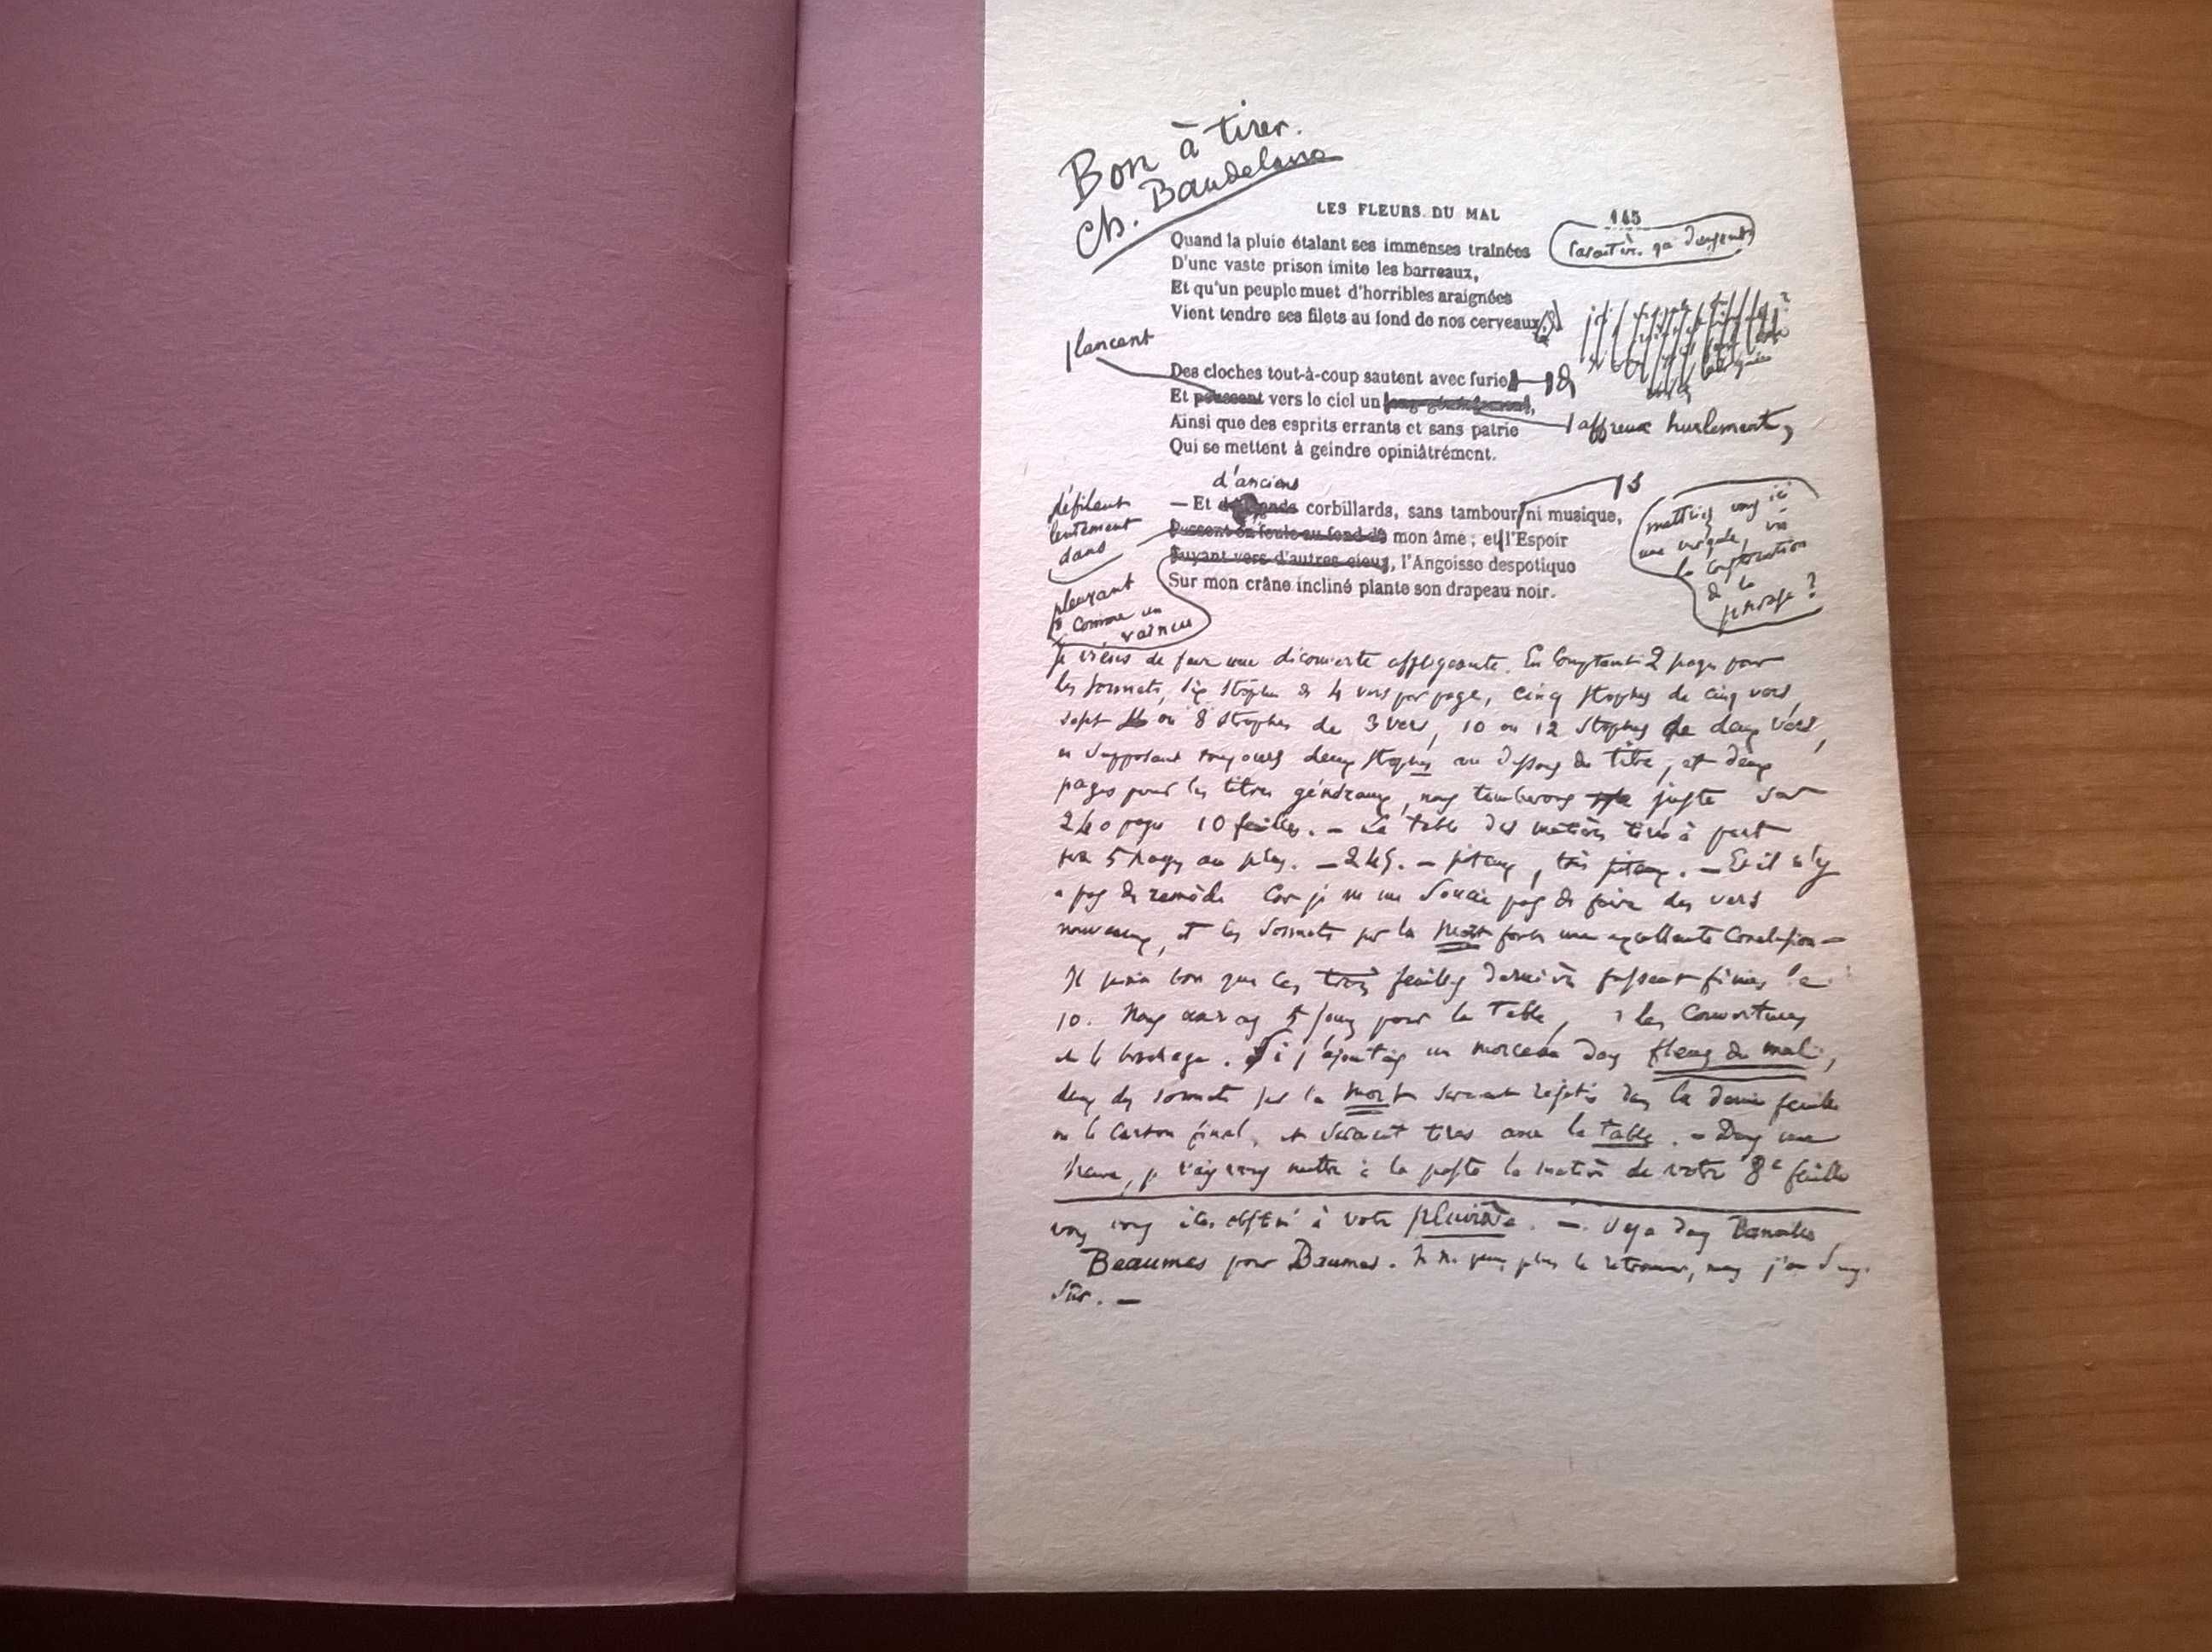 Bon à tirer.
Ch. Baudelaire
LES FLEURS DU MAL
145
Quand la pluie étalant ses immenses traînées
D'une vaste prison imite les barreaux,
Et qu'un peuple muet d'horribles araignées
Vient tendre ses filets au fond de nos cerveaux
lancent
Des cloches tout-à-coup sautent avec furie
Et poussent vers le ciel un
affreux hurlement,
Ainsi que des esprits errants et sans patrie
Qui se mettent à geindre opiniâtrément.
d'anciens
— Et corbillards, sans tambour ni musique,
défilent
lentement
dans
Passent en foule au fond de mon âme ; et l'Espoir
Fuyant vers d'autres cieux, l'Angoisse despotique
pleurant
comme un
vaincu
Sur mon crâne incliné plante son drapeau noir.
mettriez vous ici
une virgule, vu
la construction
de la
phrase ?
Je viens de faire une découverte affligeante. En comptant 2 pages pour
les sonnets, six strophes de 4 vers par page, cinq strophes de cinq vers,
sept ou 8 strophes de 3 vers, 10 ou 12 strophes de deux vers,
en supposant toujours deux strophes au dessous du titre, et deux
pages pour les titres généraux, nous tomberons juste sur
240 pages 10 feuilles. — La table des matières tirée à part
5 pages au plus. — 245. — piteux, très piteux. — Et il n'y
a pas de remède car je ne me soucie pas de faire des vers
nouveaux, et les sonnets sur la Mort font une excellente conclusion —
Il serait bon que les trois feuilles dernières fussent finies le
10. Nous aurons 5 jours pour la Table, les couvertures
et le brochage. Si j'ajoutais un morceau dans fleurs du mal,
deux des sonnets sur la Mort seraient rejetés dans la demie feuille
ou le carton final, et seraient tirés avec la table. — Dans une
heure, je vais mettre à la poste la matière de votre 8e feuille
vous vous êtes obstiné à votre — Déjà dans
Beaumes pour Baumes. Je ne puis plus le retrouver, mais j'en suis
sûr. —